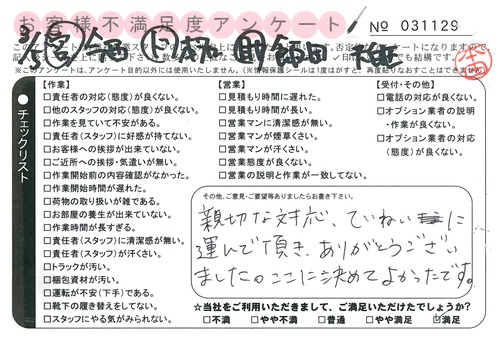 お客様不満足度アンケート
No 031129
※このアンケートは、アンケート目的以外には使用いたしません。(※情報保護シールは1度はがすと、再度貼りなおすことはできません)
チェックリスト
【作業】
□責任者の対応(態度)が良くない。
□他のスタッフの対応(態度)が良くない。
□作業を見ていて不安がある。
□責任者(スタッフ)に好感が持てない。
□お客様への挨拶が出来ていない。
□ご近所への挨拶・気遣いが無い。
□作業開始前の内容確認がなかった。
□作業開始時間が遅れた。
□荷物の取り扱いが雑である。
□お部屋の養生が出来ていない。
□作業時間が長すぎる。
□責任者(スタッフ)に清潔感が無い。
□責任者(スタッフ)が汗くさい。
□トラックが汚い。
□梱包資材が汚い。
□運転が不安(下手)である。
□靴下の履き替えをしてない。
□スタッフにやる気がみられない。
【営業】
□見積もり時間に遅れた。
□見積もり時間が長い。
□営業マンに清潔感が無い。
□営業マンが煙草くさい。
□営業マンが汗くさい。
□営業態度が良くない。
□営業の説明と作業が一致してない。
【受付・その他】
□電話の対応が良くない。
□オプション業者の説明
・作業が良くない。
□オプション業者の対応
(態度)が良くない。
その他、ご意見・ご要望等ありましたらお書き下さい。
親切な対応、ていねいに
運んで頂き、ありがとうござい
ました。ここに決めてよかったです。
☆当社をご利用いただきまして、ご満足いただけたでしょうか?
□不満 □やや不満 □普通 □やや満足 ☑満足